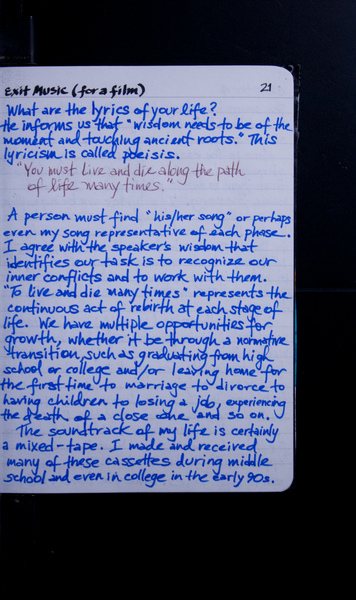 Exit Music (for a film) 21
What are the lyrics of your life?
He informs us that "wisdom needs to be of the
moment and touching ancient roots." This
lyricism is called poeisis.
"You must live and die along the path
of life many times."
A person must find "his/her song" or perhaps
even my song representative of each phase.
I agree with the speaker's wisdom that
identifies our task is to recognize our
inner conflicts and to work with them.
"To live and die many times" represents the
continuous act of rebirth at each stage of
life. We have multiple opportunities for
growth, whether it be through a normative
transition, such as graduating from high
school or college and/or leaving home for
the first time to marriage to divorce to
having children to losing a job, experiencing
the death of a close one and so on.
The soundtrack of my life is certainly
a mixed-tape. I made and received
many of these cassettes during middle
school and even in college in the early 90s.